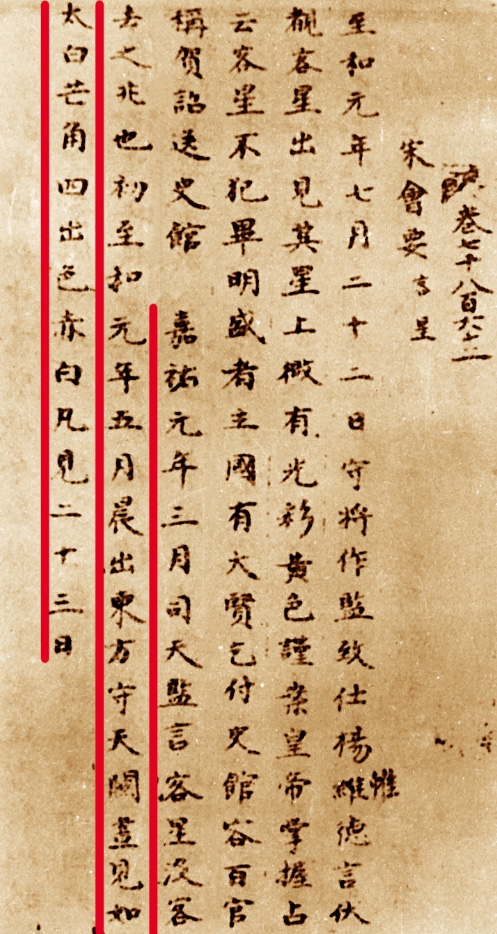 卷七千八百六十二
宋會要 星
至和元年七月二十二日守將作監致仕楊維德言伏
惟
觀客星出見其星上微有光彩黃色謹案皇帝掌握占
云客星不犯畢明盛者主國有大賢乞付史館容百官
稱賀詔送史館 嘉祐元年三月司天監言客星沒客
去之兆也初至和元年五月晨出東方守天關晝見如
太白芒角四出色赤白凡見二十三日